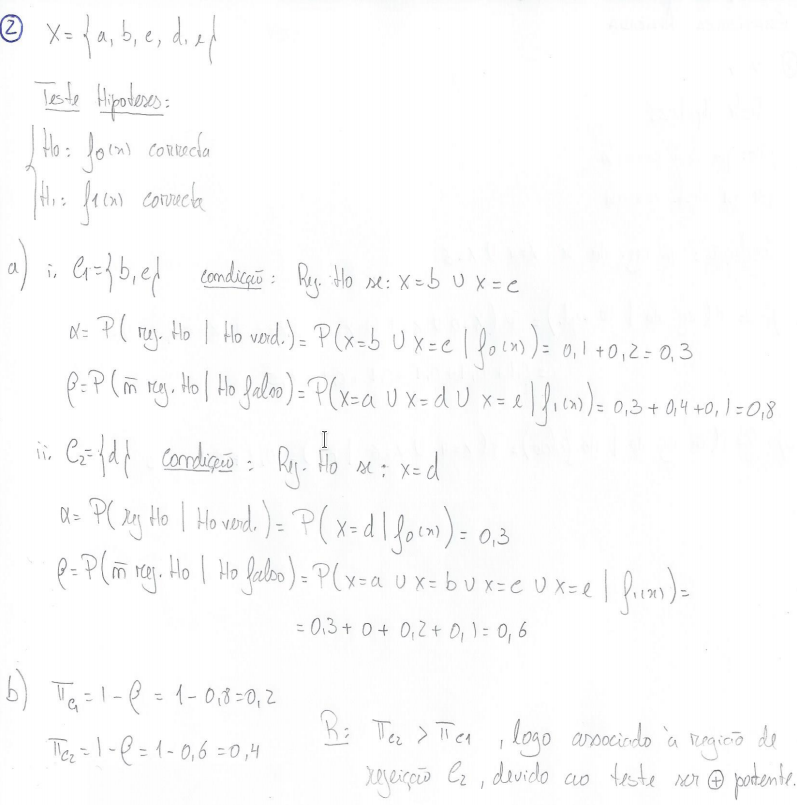 ② X = {a, b, c, d, e}
Teste Hipoteses:
H0: f0(x) correcta
H1: f1(x) correcta
a) i. C1={b,c} condicção: Rej. Ho se: x=b ∪ x=c
α= P( rej. Ho | Ho verd.)= P(x=b ∪ x=c | f0(x))= 0,1+0,2=0,3
β=P(n̄ rej. Ho | Ho falso)=P(x=a ∪ x=d ∪ x=e | f1(x))= 0,3+0,4+0,1=0,8
ii. C2={d} condicção: Rej. Ho se: x=d
α= P(rej Ho | Ho verd.)= P( x=d | f0(x))= 0,3
β=P(n̄ rej. Ho | Ho falso)=P(x=a ∪ x=b ∪ x=c ∪ x=e | f1(x))=
=0,3+0+0,2+0,1=0,6
b) πC1=1-β = 1-0,8=0,2
πC2=1-β=1-0,6=0,4
R: πC2 > πC1, logo associado à região de
rejeição C2, devido ao teste ser ⊕ potente.